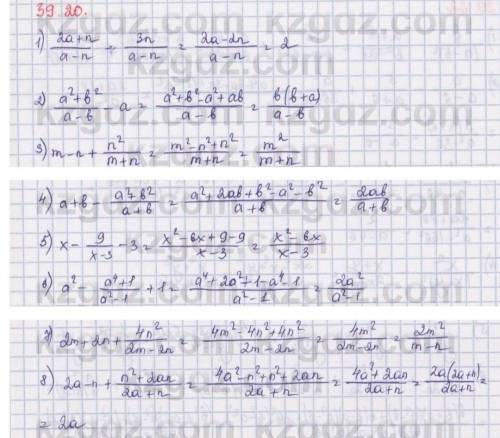 39 20.
1) (2a+n)/(a-n) + 3n/(a-n) = (2a-2n)/(a-n) = 2
2) (a²+b²)/(a-b) - a = (a²+b²-a²+ab)/(a-b) = b(b+a)/(a-b)
3) m-n + n²/(m+n) = (m²-n²+n²)/(m+n) = m²/(m+n)
4) a+b - (a²+b²)/(a+b) = (a²+2ab+b²-a²-b²)/(a+b) = 2ab/(a+b)
5) x - 9/(x-3) - 3 = (x²-6x+9-9)/(x-3) = (x²-6x)/(x-3)
6) a² - (a⁴+1)/(a²-1) + 1 = (a⁴+2a²+1-a⁴-1)/(a²-1) = 2a²/(a²-1)
7) 2m+2n + 4n²/(2m-2n) = (4m²-4n²+4n²)/(2m-2n) = 4m²/(2m-2n) = 2m²/(m-n)
8) 2a-n + (n²+2an)/(2a+n) = (4a²-n²+n²+2an)/(2a+n) = (4a²+2an)/(2a+n) = 2a(2a+n)/(2a+n) =
= 2a